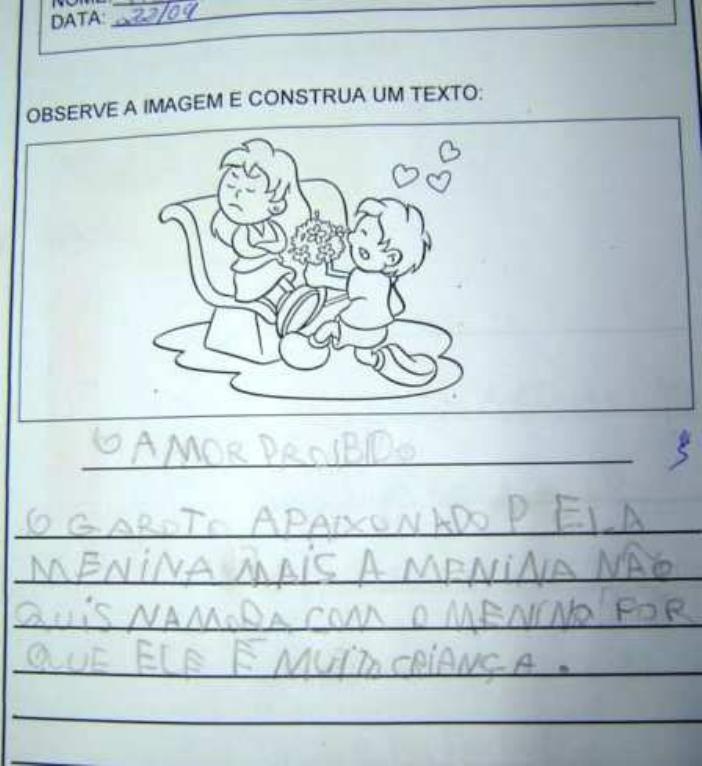 NOME:
DATA: 22/09
OBSERVE A IMAGEM E CONSTRUA UM TEXTO:
O AMOR PROIBIDO
O GAROTO APAIXONADO P ELA
MENINA MAIS A MENINA NÃO
QUIS NAMORA COM O MENINO POR
QUE ELE É MUITO CRIANÇA.